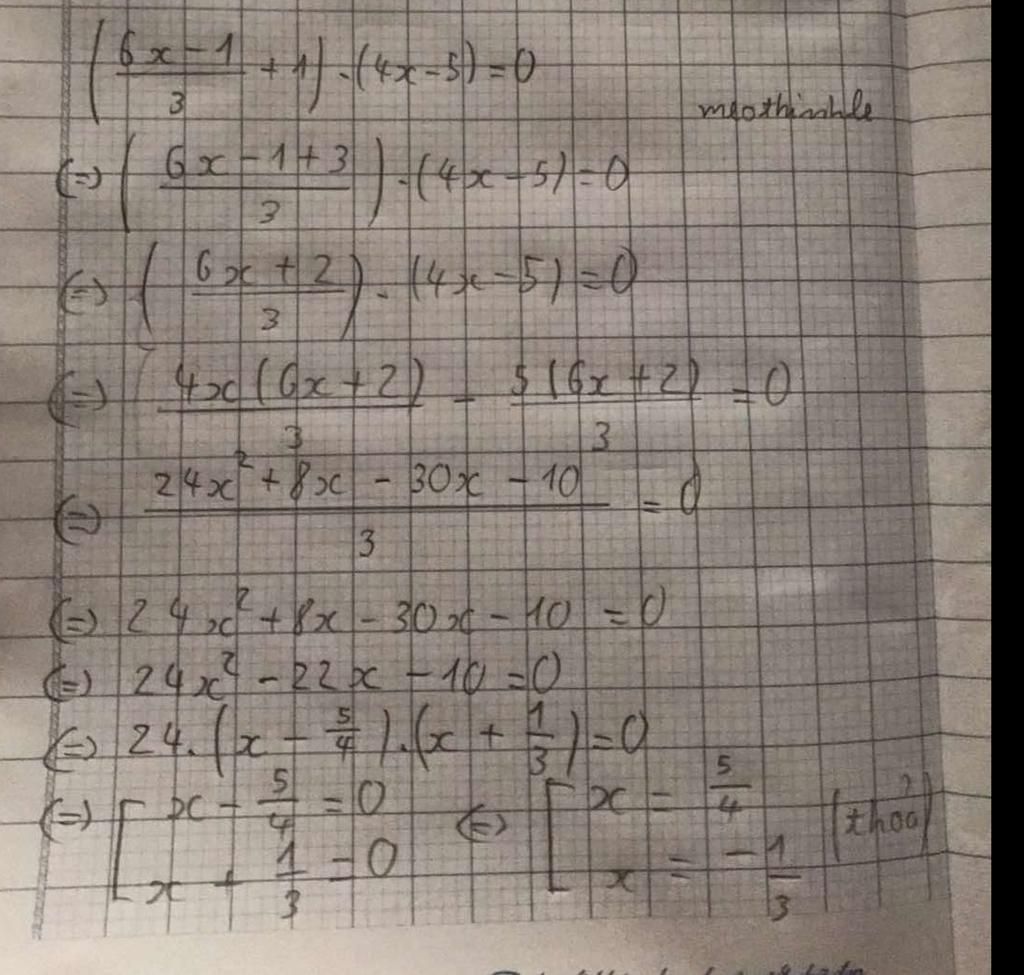 (6x-1/3 + 1).(4x-5)=0
meothinhle
(=) (6x-1+3/3).(4x-5)=0
(=) (6x+2/3).(4x-5)=0
(=) 4x(6x+2)/3 - 5(6x+2)/3 =0
(=) 24x²+8x-30x-10/3 =0
(=) 24x²+8x-30x-10=0
(=) 24x²-22x-10=0
(=) 24.(x-5/4).(x+1/3)=0
(=) [x-5/4=0 (=) [x=5/4 (thoả)
x+1/3=0 x=-1/3